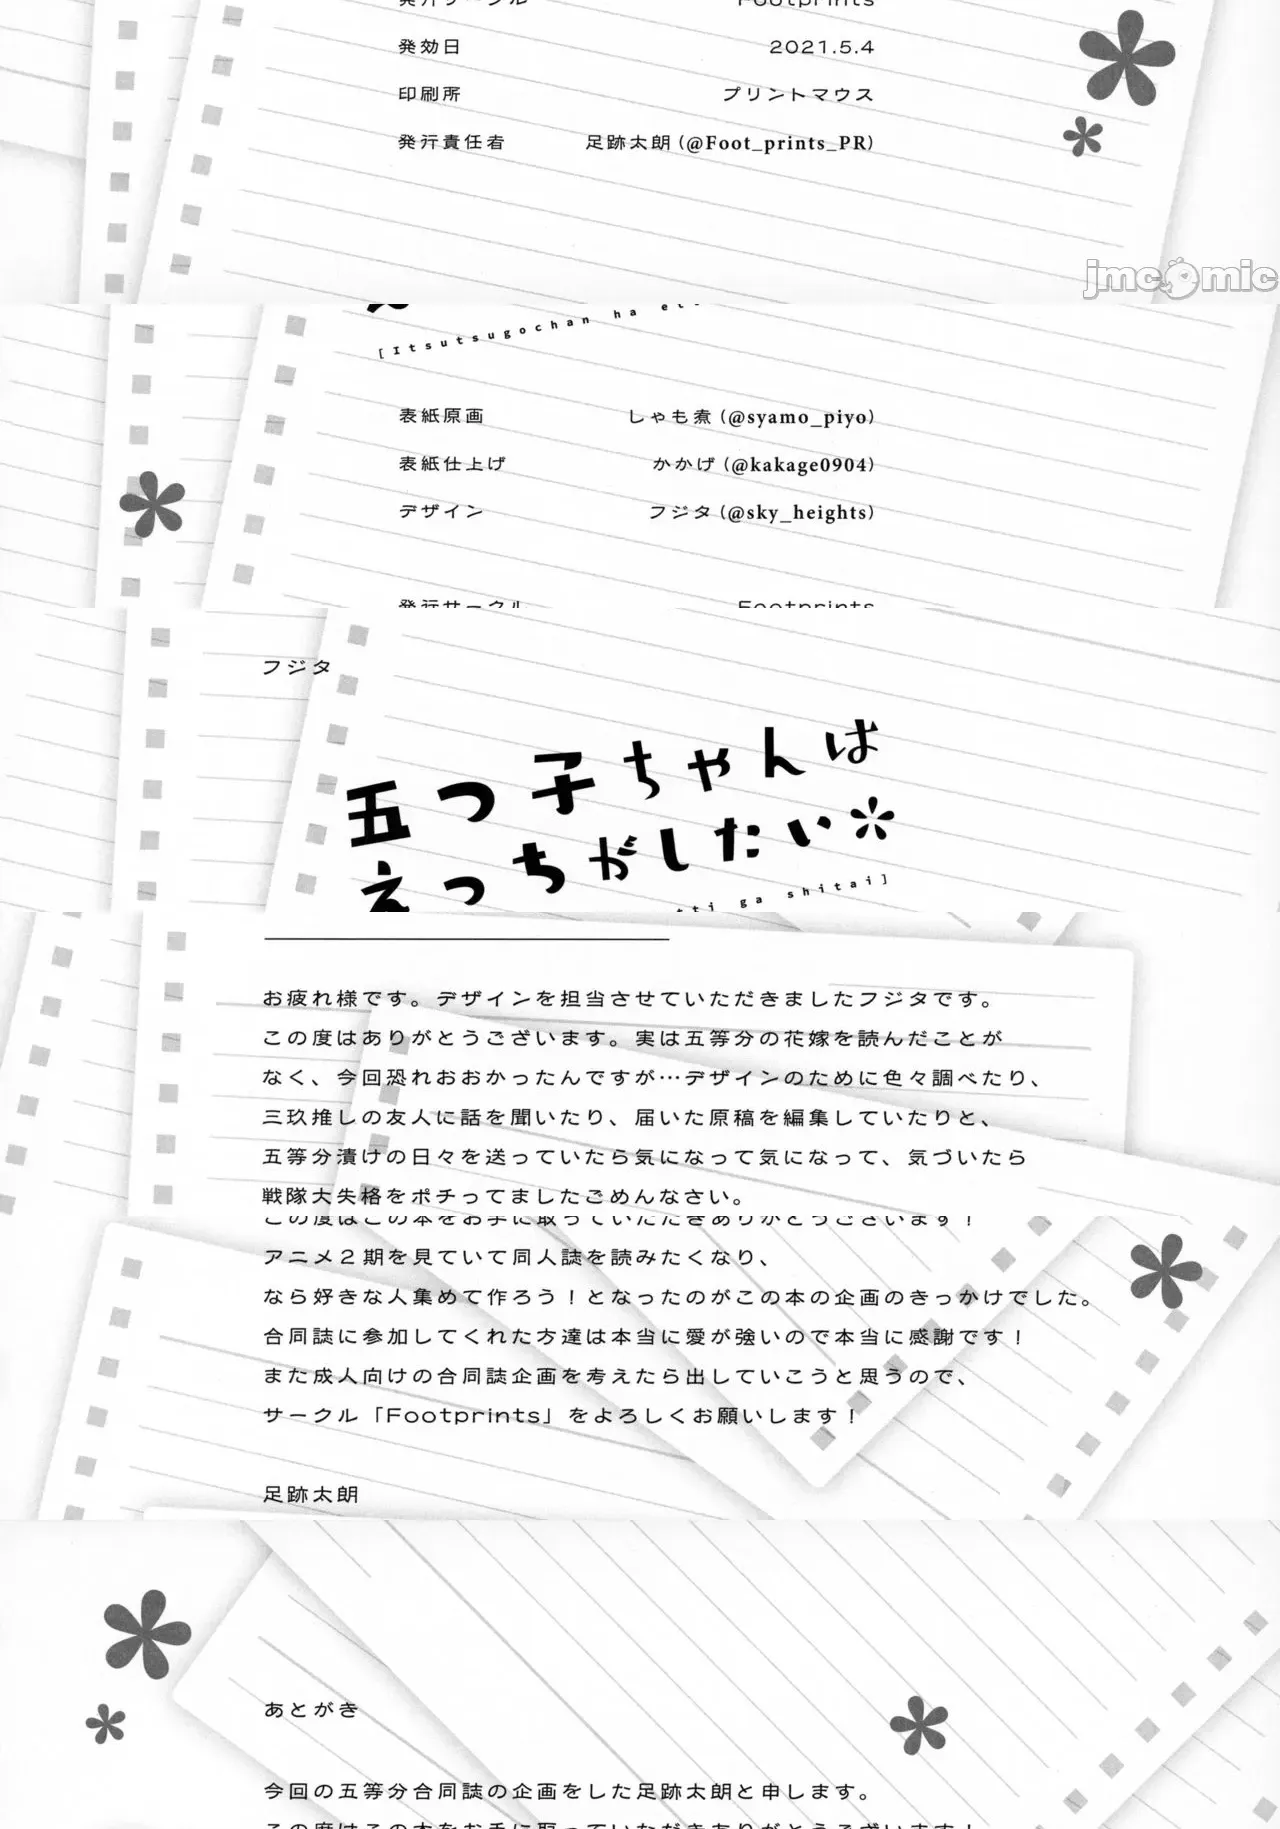 発行サークル Footprints
発効日 2021.5.4
印刷所 プリントマウス
発行責任者 足跡太朗(@Foot_prints_PR)
jmcomic
[Itsutsugochan ha et
表紙原画 しゃも煮(@syamo_piyo)
表紙仕上げ かかげ(@kakage0904)
デザイン フジタ(@sky_heights)
発行サークル Footprints
フジタ
五つ子ちゃんは
えっちがしたい*
tti ga shitai]
お疲れ様です。デザインを担当させていただきましたフジタです。
この度はありがとうございます。実は五等分の花嫁を読んだことが
なく、今回恐れおおかったんですが…デザインのために色々調べたり、
三玖推しの友人に話を聞いたり、届いた原稿を編集していたりと、
五等分漬けの日々を送っていたら気になって気になって、気づいたら
戦隊大失格をポチってましたごめんなさい。
この度はこの本をお手に取っていただきありがとうございます！
アニメ２期を見ていて同人誌を読みたくなり、
なら好きな人集めて作ろう！となったのがこの本の企画のきっかけでした。
合同誌に参加してくれた方達は本当に愛が強いので本当に感謝です！
また成人向けの合同誌企画を考えたら出していこうと思うので、
サークル「Footprints」をよろしくお願いします！
足跡太朗
あとがき
今回の五等分合同誌の企画をした足跡太朗と申します。
この度はこの本をお手に取っていただきありがとうございます！